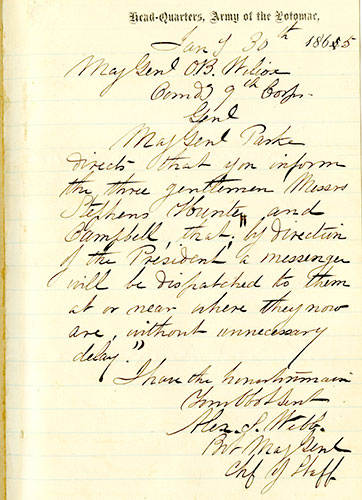 Head-Quarters, Army of the Potomac,
Jany 30th 1865
Maj Genl O.B. Wilcox
Comdg 9th Corps.
Genl
Maj Genl Parke
directs that you inform
the three gentlemen Messrs
Stephens Hunter and
Campbell, that, "by direction
of the President a messenger
will be dispatched to them
at or near where they now
are, without unnecessary
delay."
I have the honor to remain
Your Obt Servt
Alex. S. Webb.
Bvt Maj Genl
Chf of Staff